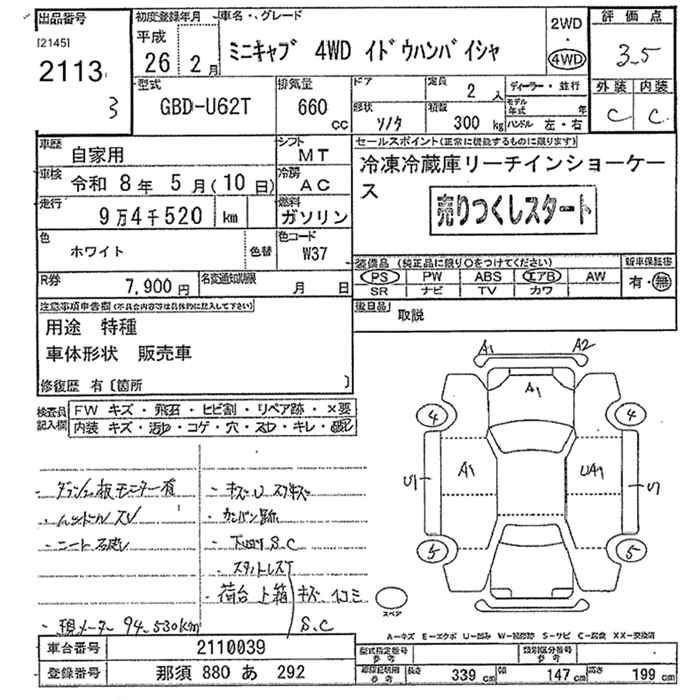 出品番号 初度登録年月日 車名・グレード 評価点
[2145]
2113
3
平成
26年 2月
ミニキャブ 4WD イドウハンバイシャ
2WD
・
4WD
3.5
型式 排気量 ドア 定員 ディーラー・並行 外装 内装
GBD-U62T 660cc 2人 モデル年式 年 C C
形状 積数 ハンドル 左・右
バン 300kg
車歴 自家用 シフト MT セールスポイント(正常に機能するものに限ります)
車検 令和 8年 5月(10日) 冷房 AC 冷凍冷蔵庫リーチインショーケース
走行 9万4千520 km 燃料 ガソリン 売りつくしスタート
色 ホワイト 色替 色コード W37
装備品(純正品に限り〇をつけてください) 新車保証書
PS PW ABS エアB AW 有・無
SR ナビ TV カワ
R券 7,900円 名変通知期限 月 日
注意事項申告欄(不具合内容等は具体的に記入して下さい) 後日品 取説
用途 特種
車体形状 販売車
修復歴 有〔箇所 〕
検査員記入欄 FW キズ・飛石・ヒビ割・リペア跡・×要
内装 キズ・汚れ・コゲ・穴・スレ・キレ・
A1 A2
A1
4 4
U1 A1 UA1 U1
5 5
スペア
・キズ U スリキズ
・カンバン跡
・下回り S.C
・荷台 上箱 キズ・凹コミ
S.C
・現メーター 94,530km
A-キズ E-エクボ U-凹み W-補修跡 S-サビ C-腐食 XX-交換済
車台番号 2110039 型式指定番号 参考 類別区分番号 参考
登録番号 那須 880 あ 292 長さ 339cm 幅 147cm 高さ 199cm